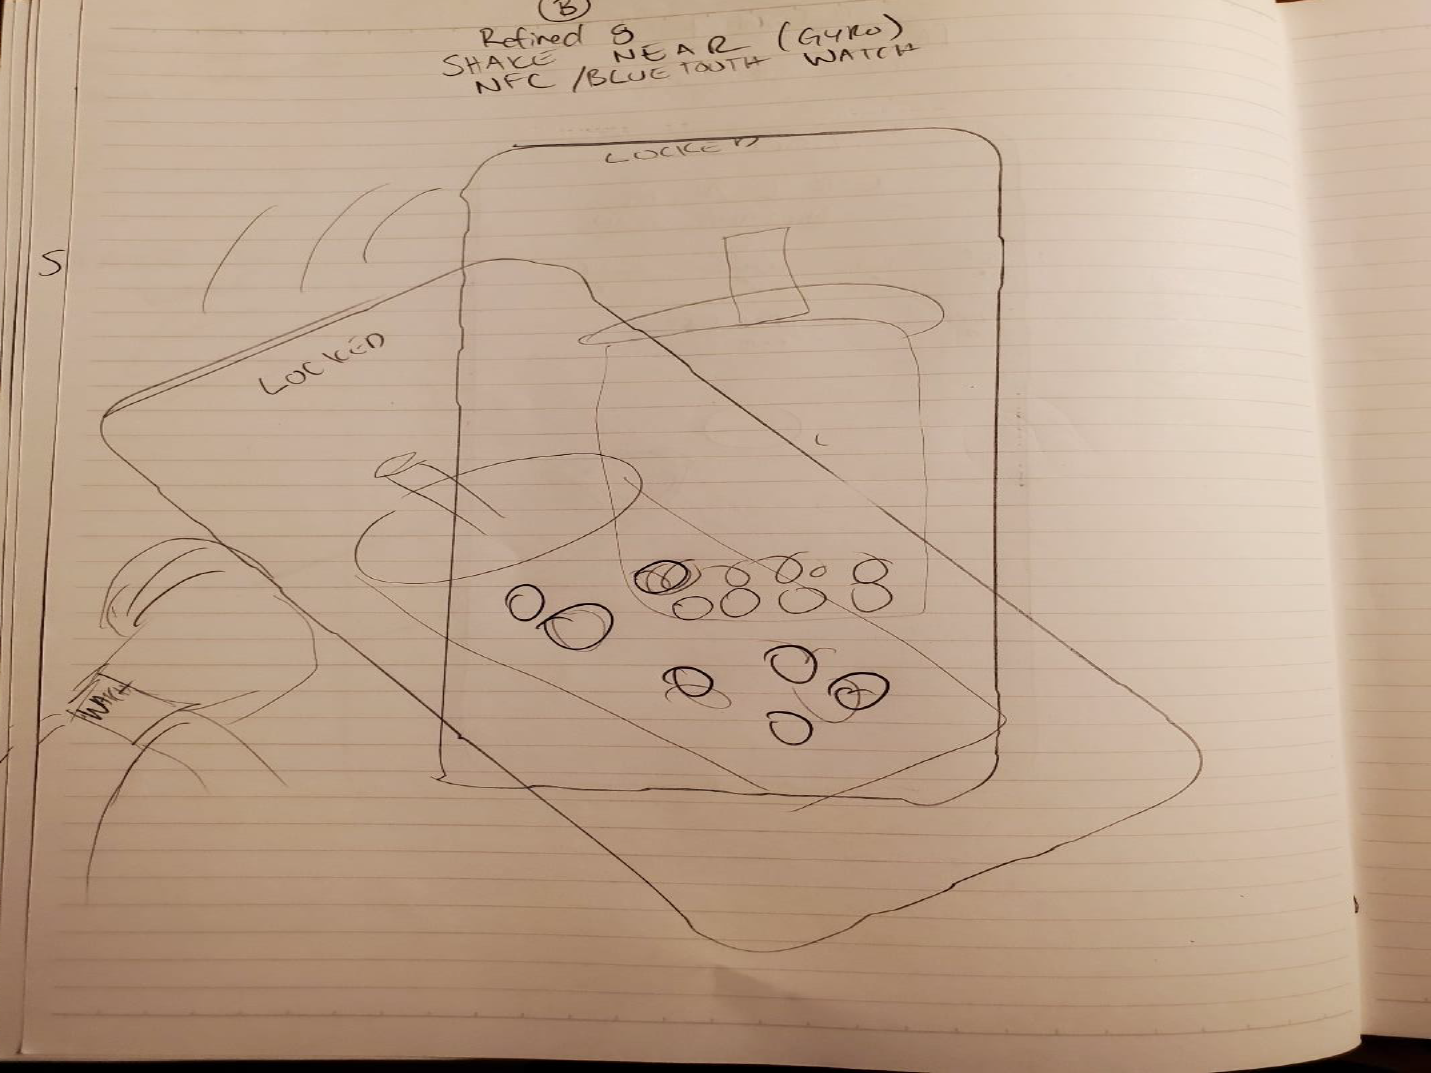 B
Refined 8
SHAKE NEAR (GYRO)
NFC/BLUETOOTH WATCH
LOCKED
S
LOCKED
WATCH